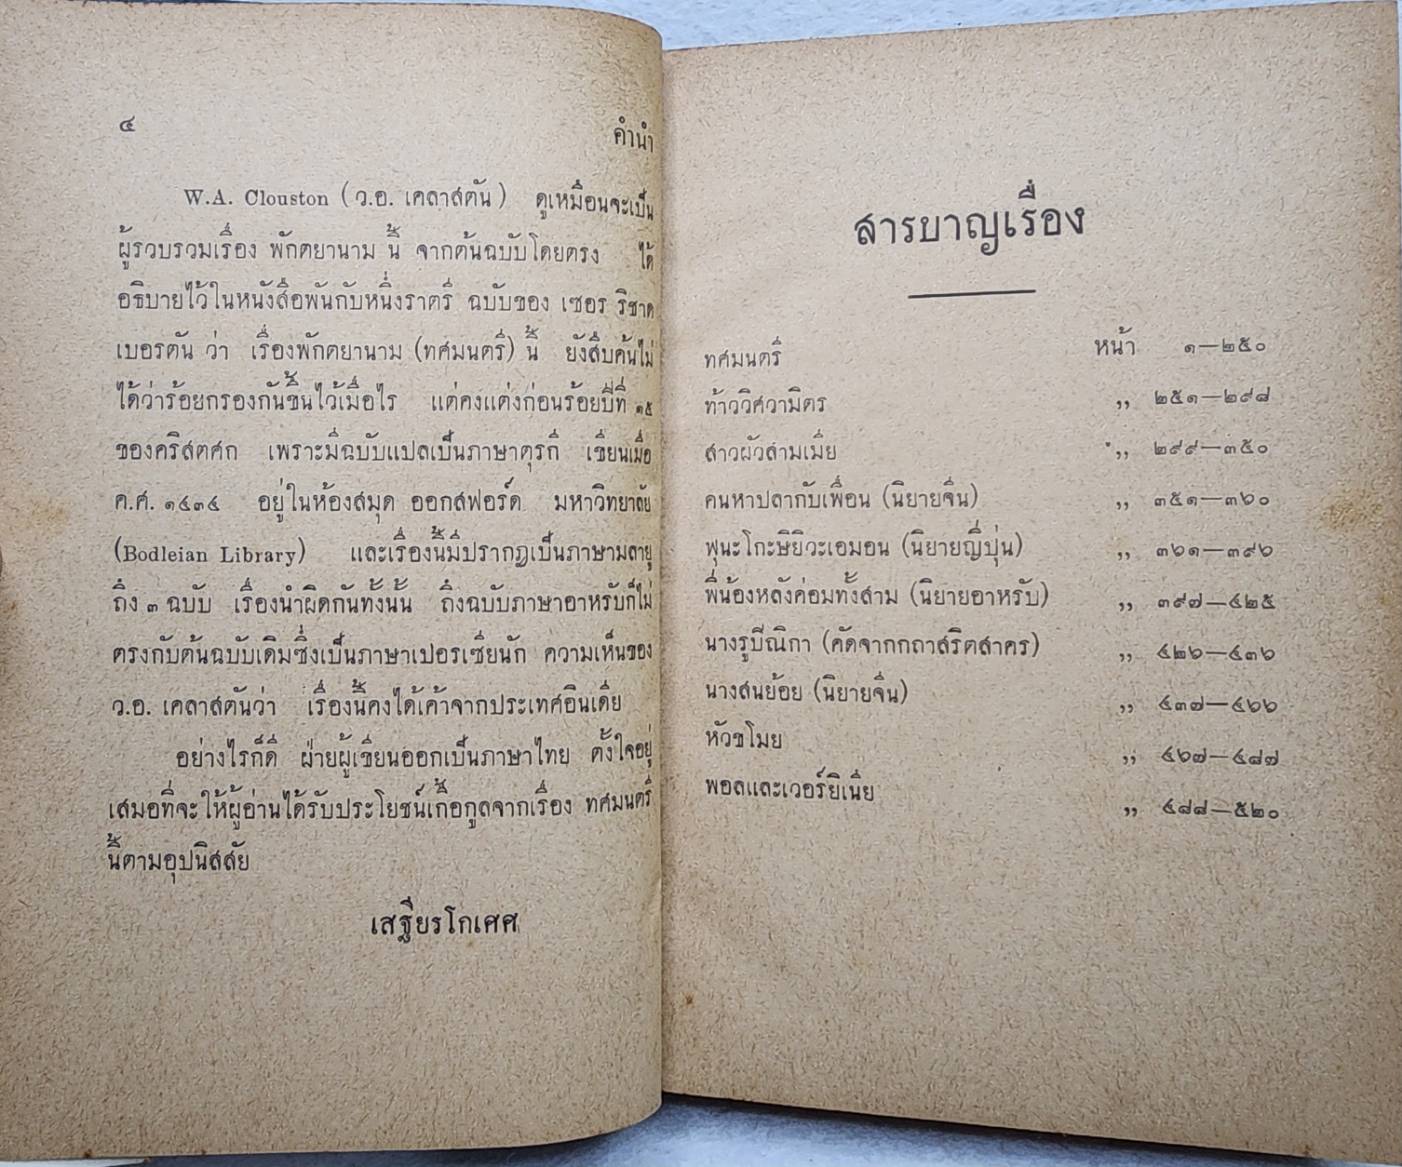 ๔ คำนำ
W.A. Clouston (ว.อ. เคลาสตัน) ดูเหมือนจะเป็น
ผู้รวบรวมเรื่อง พักตยานาม นี้ จากต้นฉบับโดยตรง ได้
อธิบายไว้ในหนังสือพันกับหนึ่งราตรี ฉบับของ เซอร ริชาด
เบอรตัน ว่า เรื่องพักตยานาม (ทศมนตรี) นี้ ยังสืบค้นไม่
ได้ว่าร้อยกรองกันขึ้นไว้เมื่อไร แต่คงแต่งก่อนร้อยปีที่ ๑๕
ของคริสตศก เพราะมีฉบับแปลเป็นภาษาตุรกี เขียนเมื่อ
ค.ศ. ๑๔๓๔ อยู่ในห้องสมุด ออกสฟอร์ด มหาวิทยาลัย
(Bodleian Library) และเรื่องนี้มีปรากฏเป็นภาษามลายู
ถึง ๓ ฉบับ เรื่องนำผิดกันทั้งนั้น ถึงฉบับภาษาอาหรับก็ไม่
ตรงกับต้นฉบับเดิมซึ่งเป็นภาษาเปอรเซียนัก ความเห็นของ
ว.อ. เคลาสตันว่า เรื่องนี้คงได้เค้าจากประเทศอินเดีย
อย่างไรก็ดี ฝ่ายผู้เขียนออกเป็นภาษาไทย ตั้งใจอยู่
เสมอที่จะให้ผู้อ่านได้รับประโยชน์เกื้อกูลจากเรื่อง ทศมนตรี
นี้ตามอุปนิสสัย
เสฐียรโกเศศ
สารบาญเรื่อง
ทศมนตรี หน้า ๑—๒๕๐
ท้าววิศวามิตร ,, ๒๕๑—๒๙๘
สาวผัวสามเมีย ,, ๒๙๙—๓๕๐
คนหาปลากับเพื่อน (นิยายจีน) ,, ๓๕๑—๓๖๐
ฟุนะโกะษิยิวะเอมอน (นิยายญี่ปุ่น) ,, ๓๖๑—๓๙๖
พี่น้องหลังค่อมทั้งสาม (นิยายอาหรับ) ,, ๓๙๗—๔๒๕
นางรูปีณิกา (คัดจากกถาสริตสาคร) ,, ๔๒๖—๔๓๖
นางสนย้อย (นิยายจีน) ,, ๔๓๗—๔๖๖
หัวขโมย ,, ๔๖๗—๔๘๗
พอลและเวอร์ยิเนีย ,, ๔๘๘—๕๒๐